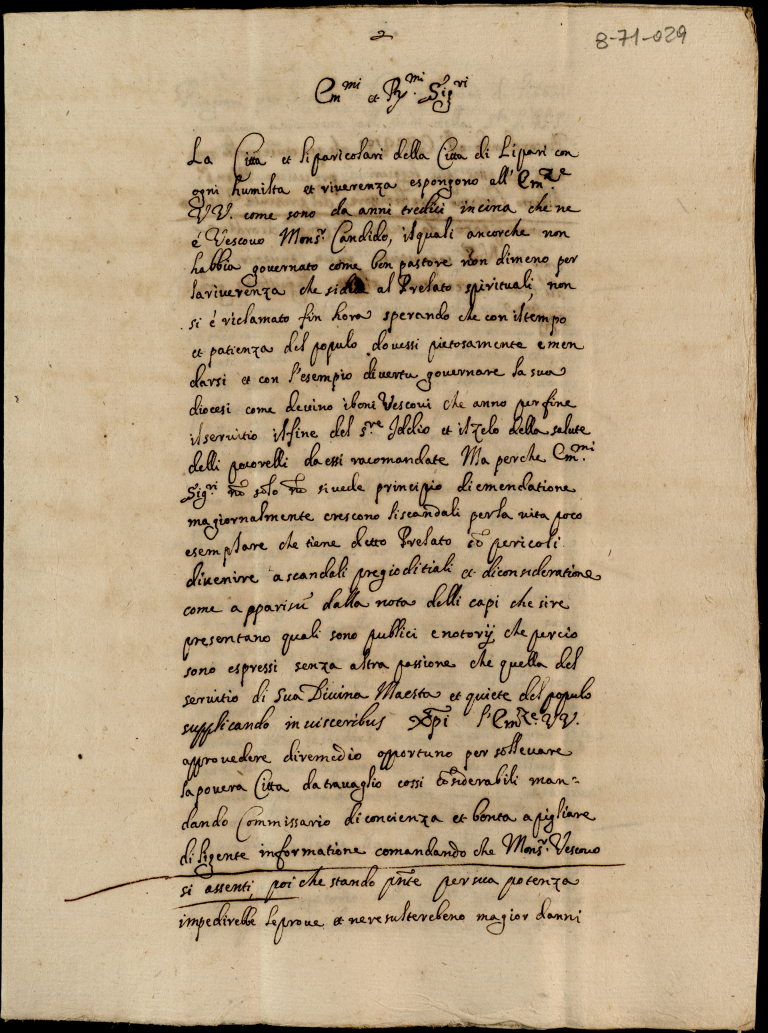 2
8-71-029
Em.mi et R.mi Sig.ri
La Citta et li paricolari della Citta di Lipari con
ogni humilta et riverenza espongono all' Em.ze
VV. come sono da anni tredici incirca che ne
é Vescovo Mons.r Candido, il quali ancorche non
habbia governato come bon pastore non dimeno per
la riverenza che si al Prelato spirituali, non
si é riclamato fin hora sperando che con il tempo
et patienza del populo dovessi pietosamente emen
darsi et con l'esempio di vertu governare la sua
diocesi come devino i boni Vescovi che anno per fine
il servitio il fine del s.re Iddio et il zelo della salute
delli pecorelli da essi racomandate Ma perche Em.mi
Sig.ri nō solo nō si vede principio di emendatione
ma giornalmente crescono li scandali per la vita poco
esemplare che tiene detto Prelato cō pericoli
di venire a scandali pregioditiali et di consideratione
come apparisci dalla nota delli capi che si re
presentano quali sono publici e notorij che percio
sono espressi senza altra passione che quella del
servitio di Sua Divina Maesta et quiete del populo
supplicando in visceribus Xpi l'Em.ze VV.
a provedere di remedio opportuno per sollevare
la povera Citta da travaglio cossi cōsiderabili man=
dando Commissario di concienza et bonta a pigliare
diligente informatione comandando che Mons.r Vescovo
si assenti, poi che stando pnte per sua potenza
impedirebbe le prove et ne resulterebeno magior danni